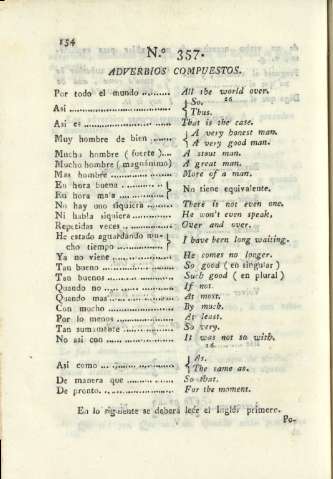 154
N.º 357.
ADVERBIOS COMPUESTOS.
Por todo el mundo .......... All the world over.
Asi .................................. { So. 26
{ Thus.
Asi es .............................. That is the case.
Muy hombre de bien ...... } A very honest man.
} A very good man.
Mucho hombre ( fuerte )... A stout man.
Mucho hombre ( magnánimo) A great man.
Mas hombre ..................... More of a man.
En hora buena ............... } No tiene equivalente.
En hora mala ...............
No hay uno siquiera ........ There is not even one.
Ni habla siquiera ............. He won't even speak,
Repetidas veces ............... Over and over.
He estado aguardando mu- } I have been long waiting.
cho tiempo ...............
Ya no viene .................... He comes no longer.
Tan bueno ...................... So good ( en singular )
Tan buenos ..................... Such good ( en plural )
Quando no ...................... If not.
Quando mas .................... At most.
Con mucho ...................... By much.
Por lo menos .................. At least.
Tan sumamente ............... So very.
No asi con ...................... It was not so with.
26
Asi como ........................ { As.
{ The same as.
De manera que ............... So that.
De pronto. ...................... For the moment.
En lo siguiente se deberá leer el Inglés primero.
Po-